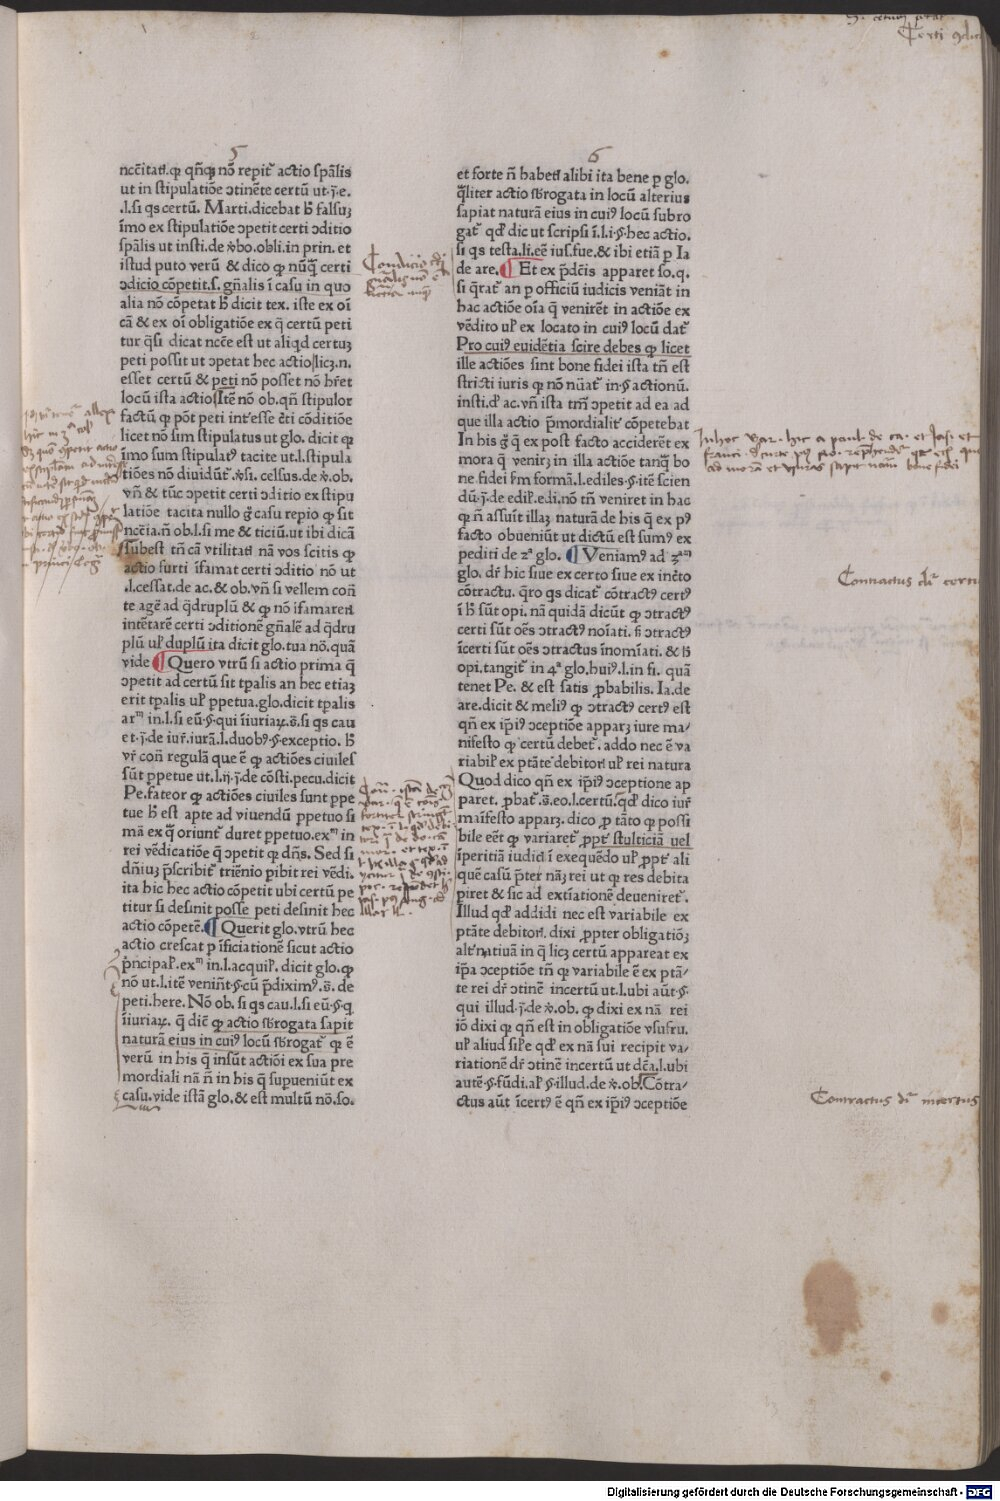 5
ncc̄itatī.ꝙ qn̄qꝫ nō repit᷑ actio sp̄alis
ut in stipulatiōe ↄtinēte certū ut.j̄.e.
.l.si qs certū. Marti.dicebat ħ falsuꝫ
īmo ex stipulatiōe ↄpetit certi ↄditio
sp̄alis ut insti.de ꝟbo.obli.in prin. et
istud puto verū & dico ꝙ nūq̄ȝ certi
ↄdicio cōpetit.s. gn̄alis ī casu in quo
alia nō cōpetat ħ dicit tex. iste ex oī
cā & ex oī obligatiōe ex q̄ certū peti
tur q̄si dicat ncc̄e est ut aliqd certuꝫ
peti possit ut ↄpetat hec actio licꝫ.n.
esset certū & peti nō posset nō hr̄et
locū ista actio Itē nō ob.qn̄ stipulor
factū ꝙ pōt peti int̄esse c̄ti cōditiōe
licet nō sim stipulatus ut glo. dicit ꝙ
īmo sum stipulat᷒ tacite ut.l.stipula
tiōes nō diuidūt᷑.ꝟsi. celsus.de ꝟ.ob.
vn̄ & tūc ↄpetit certi ↄditio ex stipu
latiōe tacita nullo ḡ casu repio ꝙ sit
ncc̄eīa.n̄ ob.l.si me & ticiū.ut ibi dicā
subest tn̄ cā vtilitatī nā vos scitis ꝙ
actio furti īfamat certi ↄditio nō ut
.l.cessat.de ac.& ob.vn̄ si vellem con̄
te agē ad q̄druplū & ꝙ nō ifamarerī
intētarē certi ↄditionē gn̄alē ad q̄dru
plū ul̓ duplū ita dicit glo.tua nō.quā
vide ¶ Quero vtrū si actio prima q̄
ↄpetit ad certū sit tp̄alis an hec etiaꝫ
erit tp̄alis ul̓ ppetua.glo.dicit tp̄alis
arᵐ in.l.si eū.§.qui īiuriaꝝ.s̄.si qs cau
et.j̄.de iur̄.iurā.l.duob᷒.§.exceptio. ħ
vr̄ con̄ regulā que ē ꝙ actiōes ciuiles
sūt ppetue ut.l.ij.j̄.de cōsti.pecu.dicit
Pe.fateor ꝙ actiōes ciuiles sunt ppe
tue ħ est apte ad viuendū ppetuo si
mā ex q̄ oriunt᷑ duret ppetuo.exᵐ in
rei vēdicatiōe q̄ ↄpetit ꝙ dn̄s. Sed si
dn̄iuꝫ p̄scribit᷑ triēnio pibit rei vēdi.
ita hic hec actio cōpetit ubi certū pe
titur si desinit posse peti desinit hec
actio cōpetē. ¶ Querit glo.vtrū hec
actio crescat p īficiationē sicut actio
p̄ncipal̓.exᵐ in.l.acquir̓. dicit glo.ꝙ
nō ut.l.itē venin̄t.§.cū p̄dixim᷒.s̄. de
peti.here. Nō ob. si qs cau.l.si eū.§.q
īiuriaꝝ. q̄ diē ꝙ actio sb̄rogata sapit
naturā eius in cui᷒ locū sb̄rogat᷑ ꝙ ē
verū in his q̄ insūt actiōi ex sua pre
mordiali nā n̄ in his q̄ supueniūt ex
casu.vide istā glo.& est multū nō.so.
6
et forte n̄ habetī alibi ita bene p glo.
q̄liter actio sb̄rogata in locū alterius
sapiat naturā eius in cui᷒ locū subro
gat᷑ qd̓ dic ut scripsi ī.l.i.§.hec actio.
si qs testa.li.eē ius.fue.& ibi etiā p Ia
de are. ¶ Et ex p̄dc̄is apparet so.q.
si q̄rat᷑ an p officiū iudicis veniāt in
hac actiōe oīa q̄ venirēt in actiōe ex
vēdito ul̓ ex locato in cui᷒ locū dat᷑
Pro cui᷒ euidētia scire debes ꝙ licet
ille actiōes sint bone fidei ista tn̄ est
stricti iuris ꝙ nō nūat᷑ in.§ actionū.
insti.d̓ ac.vn̄ ista tm̄ ↄpetit ad ea ad
que illa actio p̄mordialit᷑ cōpetebat
In his ḡ q̄ ex post facto acciderēt ex
mora q̄ venirꝫ in illa actiōe tanq̄ȝ bo
ne fidei ẜm formā.l.ediles.§.itē scien
dū.j̄.de edil̓.edi.nō tn̄ veniret in hac
ꝙ n̄ assuit illaꝫ naturā de his q̄ ex p᷒
facto obueniūt ut dictū est sum᷒ ex
pediti de zᵃ glo. ¶ Veniam᷒ ad zᵃᵐ
glo. dr̄ hic siue ex certo siue ex inc̄to
cōtractu. q̄ro qs dicat᷑ cōtract᷒ cert᷒
ī ħ sūt opi. nā quidā dicūt ꝙ ↄtract᷒
certi sūt oēs ↄtract᷒ noīati. ſi ↄtract᷒
īcerti sūt oēs ↄtractus īnomīati. & ħ
opi.tangit᷑ in 4ᵃ glo.hui᷒.l.in fi. quā
tenet Pe. & est satis p̄babilis. Ia.de
are.dicit & meli᷒ ꝙ ↄtract᷒ cert᷒ est
qn̄ ex ip̄i᷒ ↄceptiōe apparꝫ iure ma⸗
nifesto ꝙ certū debet᷑. addo nec ē va
riabil̓ ex ptāte debitorī ul̓ rei natura
Quod dico qn̄ ex ip̄i᷒ ↄceptione ap
paret. p̄bat᷑.s̄.eo.l.certū.qd̓ dico iur̄
maīfesto apparꝫ. dico p tāto ꝙ possi
bile eēt ꝙ variaret᷑ p̄pt᷑ stulticiā uel
īperitiā iudicī ī exequēdo ul̓ p̄pt᷑ ali
quē casū p̄ter nāꝫ rei ut ꝙ res debita
piret & sic ad extīationē deueniret᷑.
Illud qd̓ addidi nec est variabile ex
ptāte debitorī. dixi p̄pter obligatiōꝫ
alt᷑natiuā in q̄ licꝫ certū appareat ex
ip̄a ↄceptiōe tn̄ ꝙ variabile ē ex ptā⸗
te rei dr̄ ↄtinē incertū ut.l.ubi aūt.§.
qui illud.j̄.de ꝟ.ob.ꝙ dixi ex nā rei
iō dixi ꝙ qn̄ est in obligatiōe vsufru.
ul̓ aliud sil̓e qd̓ ex nā sui recipit va⸗
riationē dr̄ ↄtinē incertū ut dc̄a.l.ubi
autē.§.fūdi.al̓.§.illud.de ꝟ.ob.Cōtra⸗
ctus aūt īcert᷒ ē qn̄ ex ip̄i᷒ ↄceptiōe
Contractus dr̄ certu
Contractus dr̄ incertus
Digitalisierung gefördert durch die Deutsche Forschungsgemeinschaft - DFG